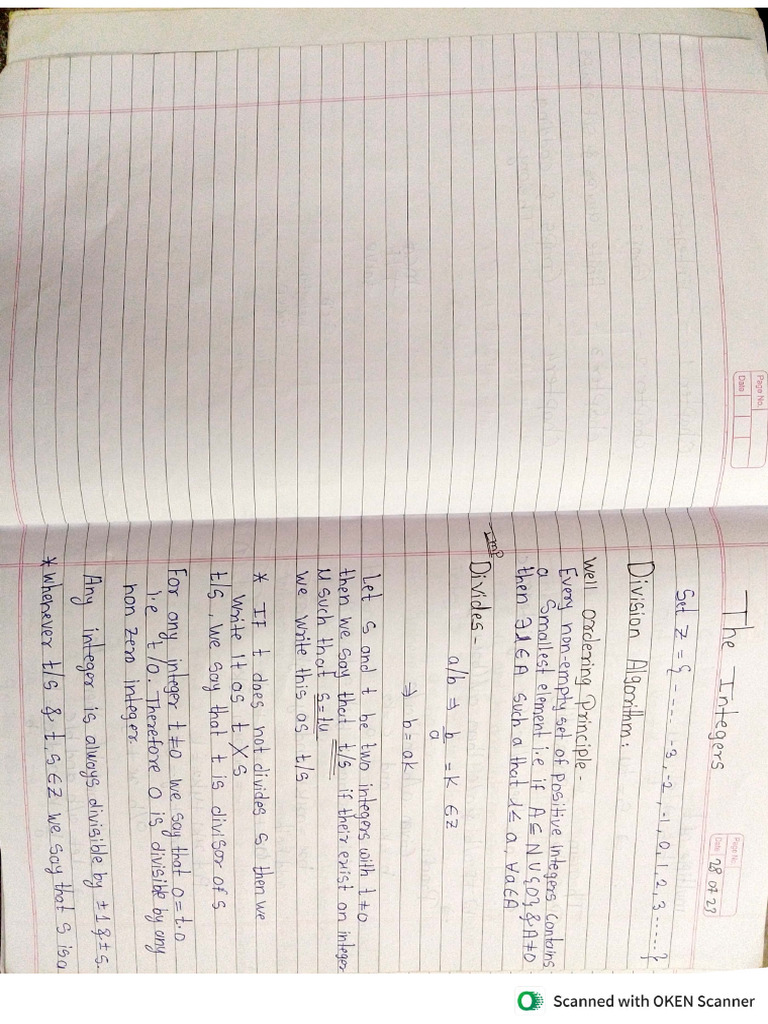 Page No.
Date
Page No.
Date 28 07 23
The Integers
Set Z = { ---- -3, -2, -1, 0, 1, 2, 3 ..... }
Division Algorithm:
Well ordering Principle -
Every non-empty set of positive integers contains
a smallest element i.e if A ⊆ N ∪ {0} & A ≠ 0
then ∃ l ∈ A such a that l ≤ a, ∀ a ∈ A
Imp
Divides -
a/b ⇒ b/a = K ∈ Z
⇒ b = ak
Let s and t be two integers with t ≠ 0
then we say that t/s if their exist an integer
u such that s = tu
we write this as t/s
* If t does not divides s, then we
write it as t X s
t/s, we say that t is divisor of s
For any integer t ≠ 0 we say that 0 = t.0
i.e t/0. Therefore 0 is divisible by any
non zero integer.
Any integer is always divisible by ±1 & ± s.
* Whenever t/s & t, s ∈ Z we say that s is a
Scanned with OKEN Scanner